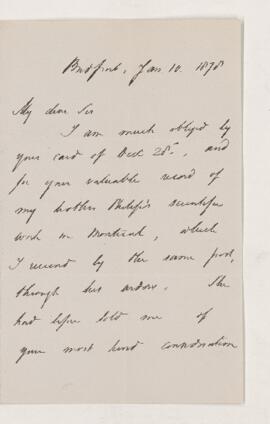 Bradford, Jan. 10. 1878
My dear Sir
I am much obliged by
your card of Dec 28th, and
for your valuable record of
my brother Philip's scientific
work in Montreal, which
I received by the same post,
through his widow. She
had before told me of
your most kind consideration